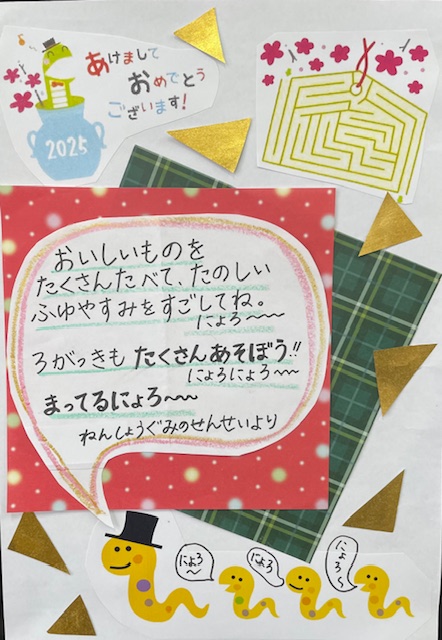 あけまして
おめでとう
ございます!
2025
おいしいものを
たくさんたべて、たのしい
ふゆやすみをすごしてね。
にょろ〜〜〜
3がっきも たくさんあそぼう!!
にょろにょろ〜〜
まってるにょろ〜〜〜
ねんしょうぐみのせんせいより
にょろ〜
にょろ
にょろ〜